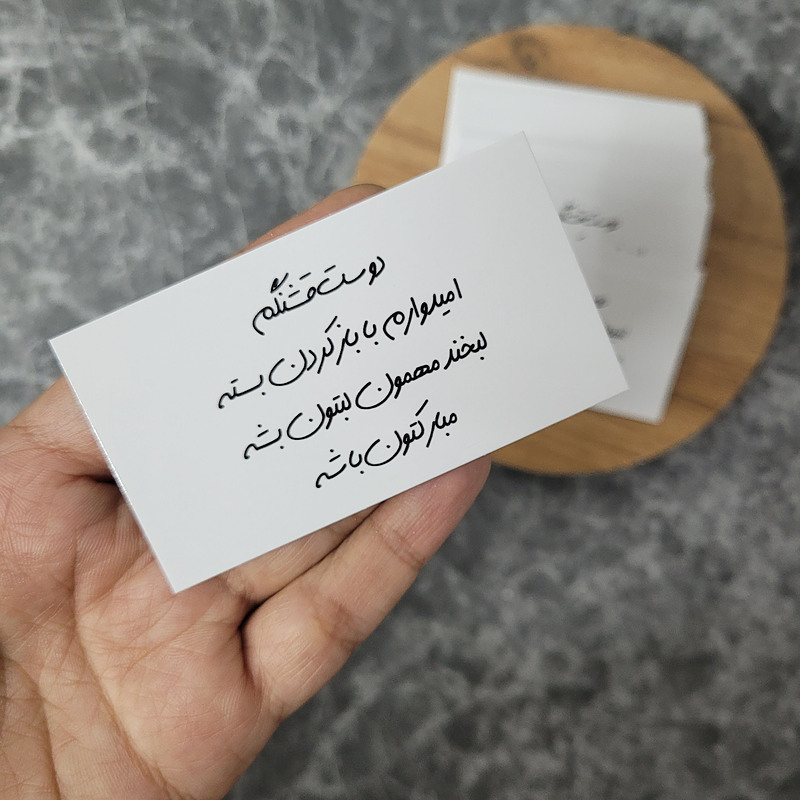 دوست قشنگم
امیدوارم با باز کردن بسته
لبخند مهمون لبتون بشه
مبارکتون باشه